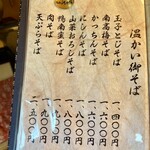 温かい御そば
玉子とじそば 一、四〇〇
南高梅そば 一、六〇〇
かっちんそば 一、六〇〇
にしんそば 一、八〇〇
山菜おろしそば 一、八〇〇
鴨南蛮そば 一、八〇〇
肉そば 一、九〇〇
天ぷらそば 二、五〇〇